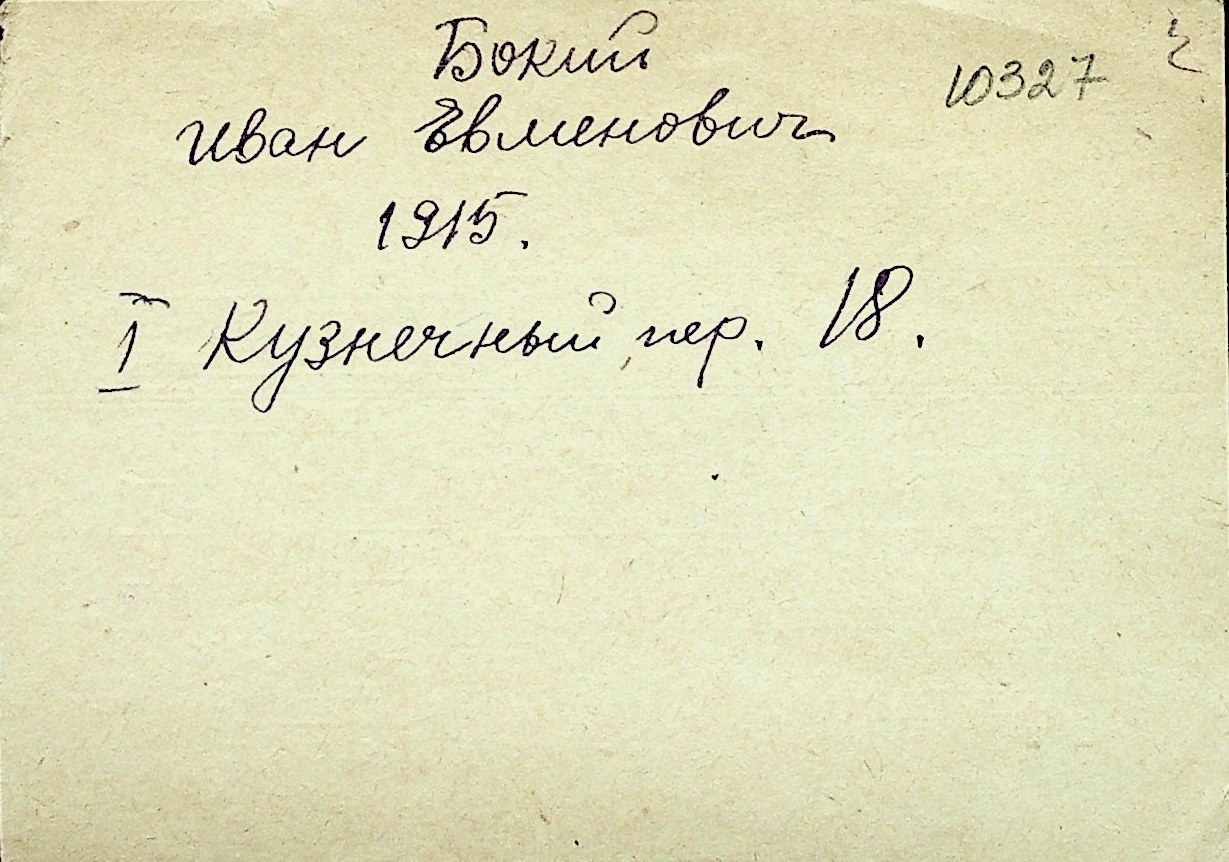 Бокий
10327
Иван Евменович
1915.
I Кузнечный пер. 18.